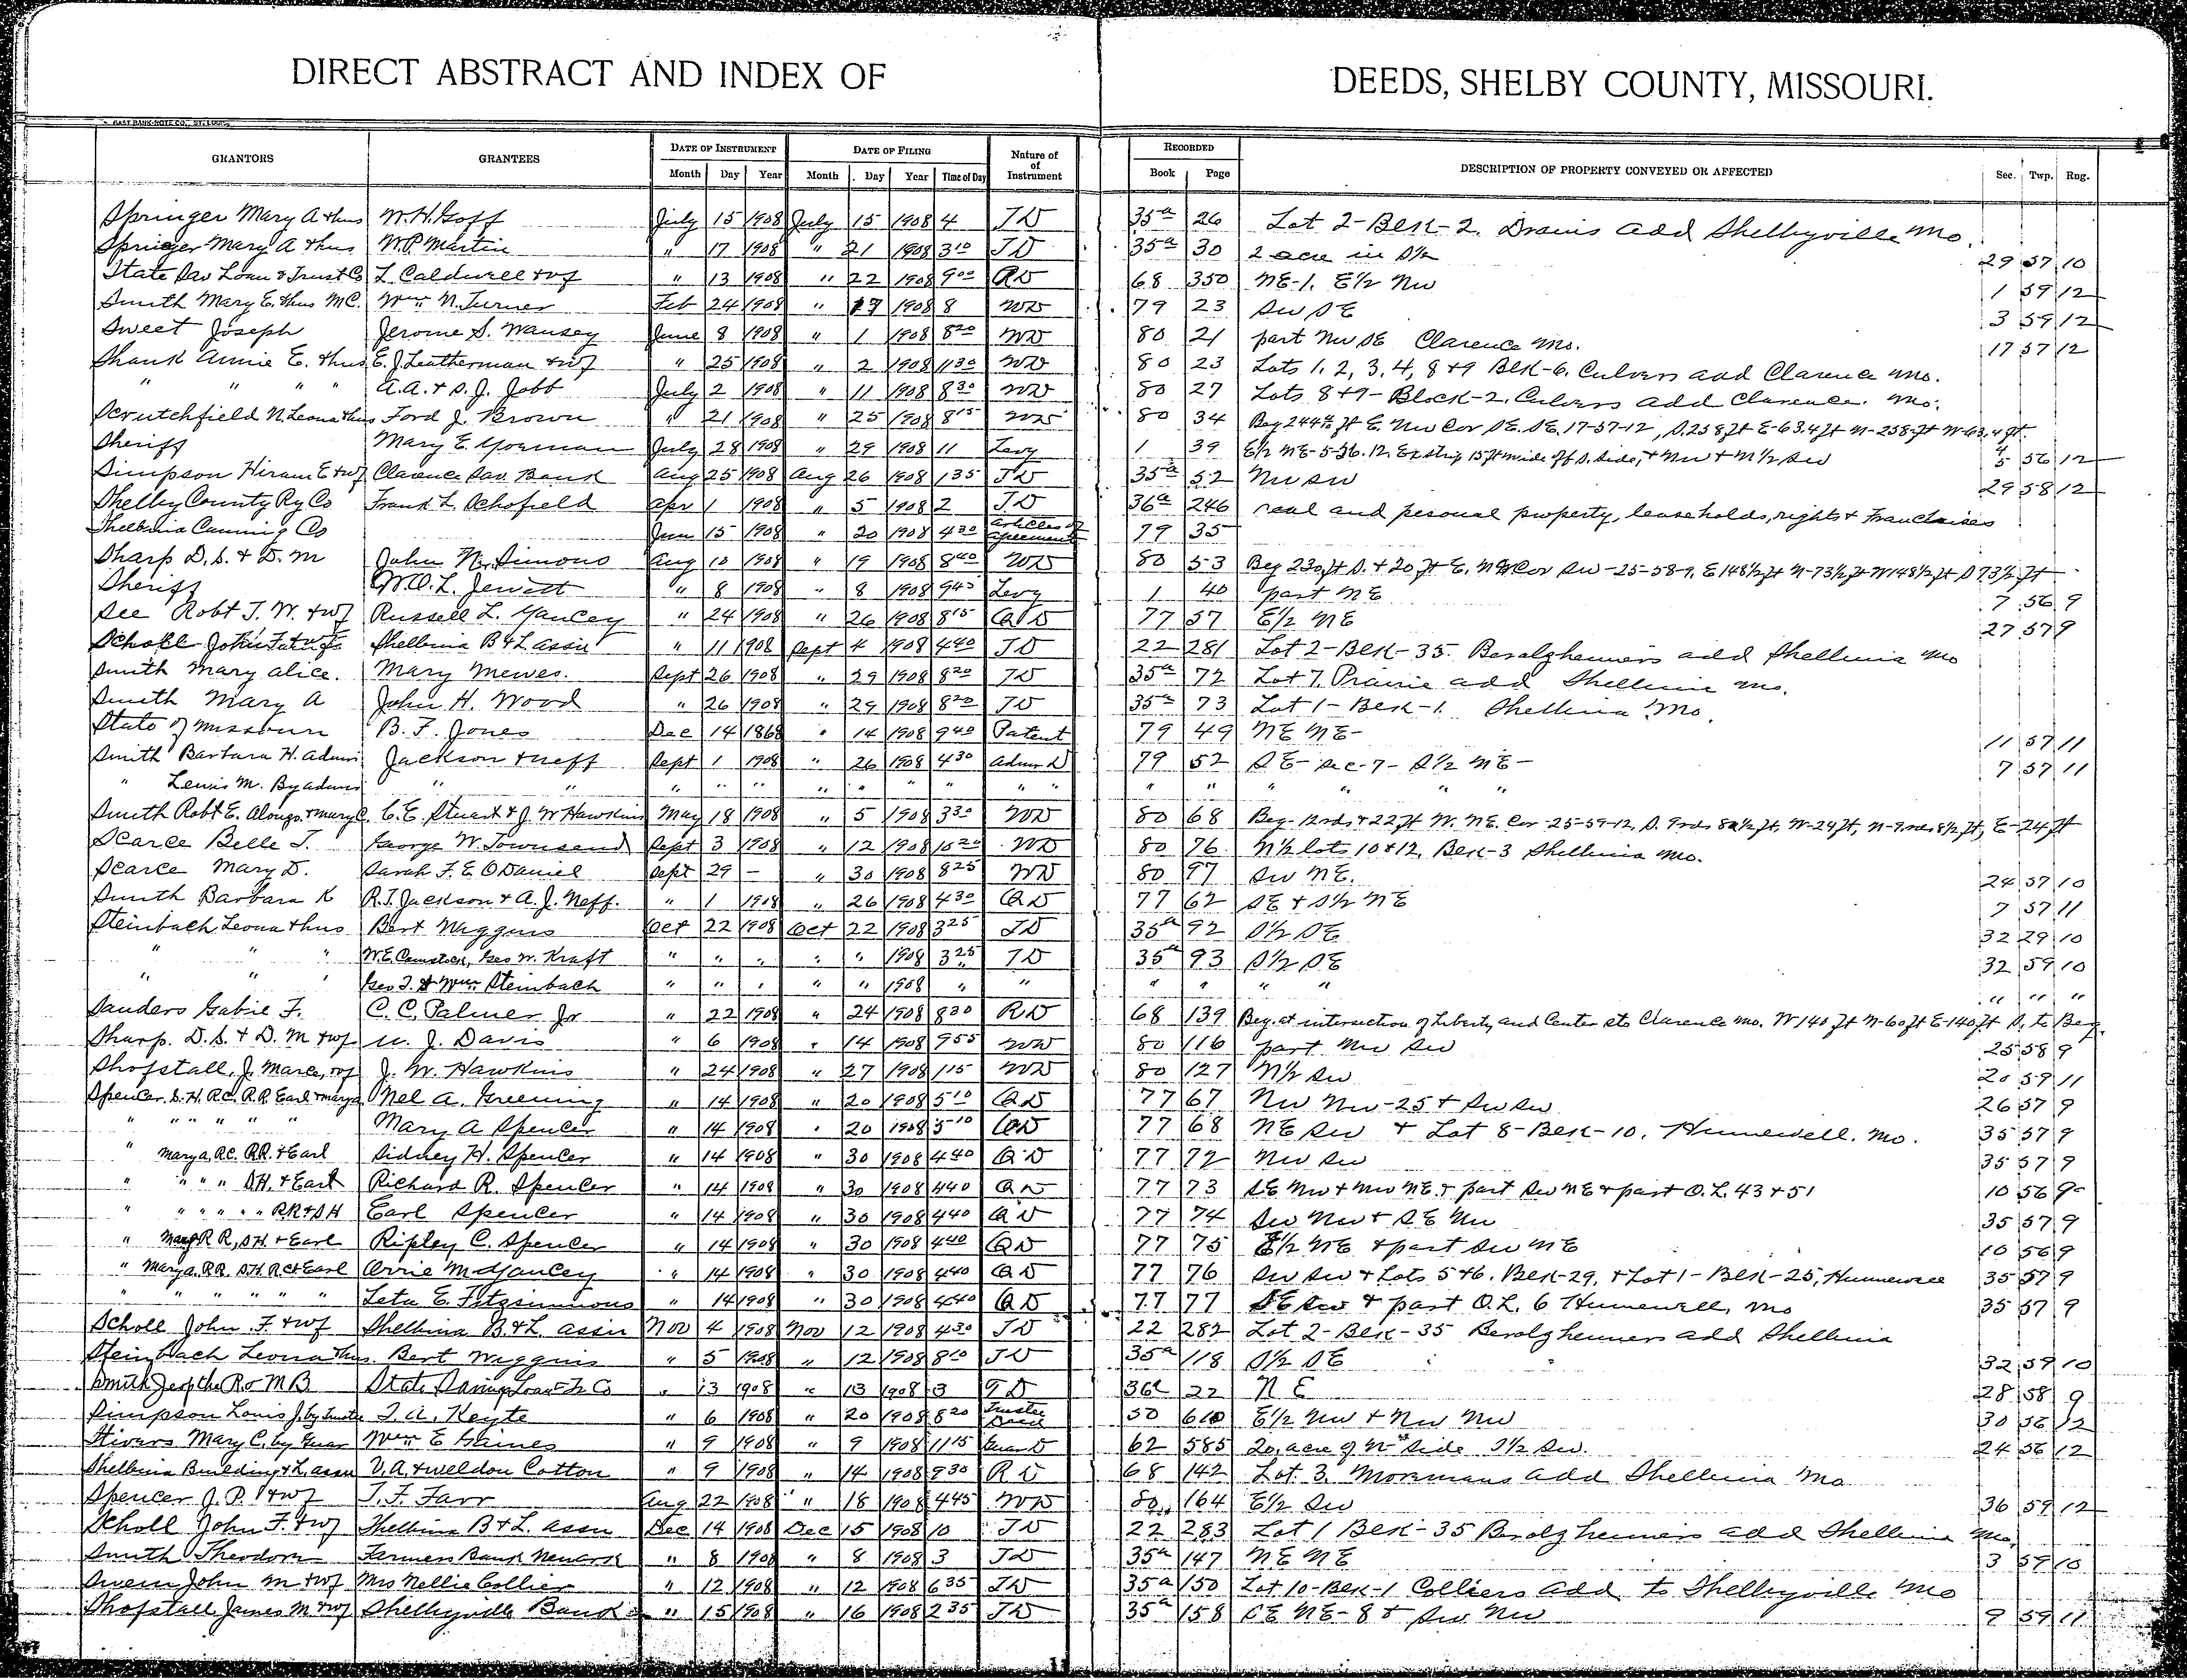 DIRECT ABSTRACT AND INDEX OF DEEDS, SHELBY COUNTY, MISSOURI.
GRANTORS GRANTEES DATE OF INSTRUMENT DATE OF FILING Nature of of Instrument RECORDED DESCRIPTION OF PROPERTY CONVEYED OR AFFECTED Sec. Twp. Rng.
Month Day Year Month Day Year Time of Day Book Page
Springer Mary A & hus W. H. Goff July 15 1908 July 15 1908 4 TD 35a 26 Lot 2-Blk-2. Drains add Shelbyville Mo.
Springer Mary A & hus W. P. Martin " 17 1908 " 21 1908 3 10 TD 35a 30 2 acre in S½ 29 57 10
State Sav Loan & Trust Co L. Caldwell & wf " 13 1908 " 22 1908 9 00 RD 68 350 NE-1. E½ NW 1 59 12
Smith Mary E. & hus M.C. Wm N. Turner Feb 24 1908 " 1908 8 WD 79 23 SW SE 3 59 12
Sweet Joseph Jerome S. Wansey June 8 1908 " 1 1908 8 20 WD 80 21 part NW SE Clarence Mo. 17 57 12
Shank Annie E. & hus E. J. Leatherman & wf " 25 1908 " 2 1908 11 30 WD 80 23 Lots 1, 2, 3, 4, 8 & 9 Blk-6. Culvers add Clarence Mo.
" " " " A.A. & S. J. Jobb July 2 1908 " 11 1908 8 30 WD 80 27 Lots 8 & 9-Block-2. Culvers add Clarence. Mo.
Scrutchfield N. Leona & hus Ford J. Brown " 21 1908 " 25 1908 8 15 WD 80 34 Beg 244½ ft E. NW Cor SE. SE. 17-57-12, S. 258 ft E-63.4 ft N-258 ft W-63.4 ft.
Sheriff Mary E. Gorman July 28 1908 " 29 1908 11 Levy 1 39 E½ NE-5-56.12. Ex strip 15 ft wide off S. side, & NW & N½ SW 5 56 12
Simpson Hiram E & wf Clarence Sav. Bank Aug 25 1908 Aug 26 1908 1 35 TD 35a 52 NW SW 29 58 12
Shelby County Ry Co Frank L. Schofield Apr 1 1908 " 5 1908 2 TD 36a 246 real and pesonal property, leaseholds, rights & Franchises
Shelbina Canning Co June 15 1908 " 20 1908 4 30 Articles of agreement 79 35
Sharp D. S. & D. M John N. Simons Aug 10 1908 " 19 1908 8 40 WD 80 53 Beg 230 ft S. & 20 ft E. NW Cor SW-25-58-9. E 148½ ft N-73½ ft W 148½ ft S 73½ ft
Sheriff W.O. L. Jewett " 8 1908 " 8 1908 9 45 Levy 1 40 part NE 7 56 9
See Robt T. W. & wf Russell L. Yancey " 24 1908 " 26 1908 8 15 QD 77 57 E½ NE 27 57 9
Scholl John F. & wf Shelbina B & L assn " 11 1908 Sept 4 1908 4 40 TD 22 281 Lot 2-Blk-35. Berolzheimers add Shelbina Mo
Smith Mary Alice. Mary Mewes. Sept 26 1908 " 29 1908 8 20 TD 35a 72 Lot 7. Prairie add Shelbina Mo.
Smith Mary A John H. Wood " 26 1908 " 29 1908 8 20 TD 35a 73 Lot 1-Blk-1. Shelbina Mo.
State of Missouri B. F. Jones Dec 14 1868 " 14 1908 9 40 Patent 79 49 NE NE- 11 57 11
Smith Barbara H. Admr Jackson & Neff Sept 1 1908 " 26 1908 4 30 Admr D 79 52 SE-Sec-7-S½ NE- 7 57 11
" Lewis M. By admr " " " " " " " " " " " " " " " "
Smith Robt E. Alonzo. & Mary C. C. E. Stuart & J. W Hawkins May 18 1908 " 5 1908 3 30 WD 80 68 Beg. 12 rds & 22 ft W. NE. Cor-25-59-12, S. 9 rds 8½ ft, W-24 ft, N-9 rds 8½ ft, E-24 ft
Scarce Belle T. George W. Townsend Sept 3 1908 " 12 1908 10 20 WD 80 76 N½ lots 10 & 12, Blk-3 Shelbina Mo.
Scarce Mary D. Sarah F. E. O Daniel Sept 29 - " 30 1908 8 25 WD 80 97 SW NE. 24 57 10
Smith Barbara K R. T. Jackson & A. J. Neff. " 1 1908 " 26 1908 4 30 QD 77 62 SE & S½ NE 7 57 11
Steinbach Leona & hus Bert Wiggins Oct 22 1908 Oct 22 1908 3 25 TD 35a 92 S½ SE 32 29 10
" " " W. E. Comstock, Geo W. Kraft " " " " " 1908 3 25 TD 35a 93 S½ SE 32 59 10
" " " Geo T. & Wm Steinbach " " " " " 1908 " " " " " " " " "
Sanders Gabie F. C. C. Palmer Jr " 22 1908 " 24 1908 8 30 RD 68 139 Beg. at intersection of Liberty and Center sts Clarence Mo. W 140 ft N-60 ft E-140 ft S. to Beg.
Sharp. D. S. & D. M & wf W. J. Davis " 6 1908 " 14 1908 9 55 WD 80 116 part NW SW 25 58 9
Shofstall, J. Marce, & wf J. W. Hawkins " 24 1908 " 27 1908 1 15 WD 80 127 N½ SW 20 59 11
Spencer. S. H. R.C. R.R. Earl & Mary A Nel A. Greening " 14 1908 " 20 1908 5 10 QD 77 67 NW NW-25 & SW SW 26 57 9
" " " " " " Mary A Spencer " 14 1908 " 20 1908 5 10 QD 77 68 NE SW & Lot 8-Blk-10. Hunnewell. Mo. 35 57 9
" Mary A, R.C. R.R. & Earl Sidney H. Spencer " 14 1908 " 30 1908 4 40 QD 77 72 NW SW 35 57 9
" " " " S.H. & Earl Richard R. Spencer " 14 1908 " 30 1908 4 40 QD 77 73 SE NW & NW NE. & part SW NE & part O. L. 43 & 51 10 56 9
" " " " " " R.R & S H Earl Spencer " 14 1908 " 30 1908 4 40 QD 77 74 SW NW & SE NW 35 57 9
" Mary R R, S.H. & Earl Ripley C. Spencer " 14 1908 " 30 1908 4 40 QD 77 75 E½ NE & part SW NE 10 56 9
" Mary A. R.R. S.H. R.C & Earl Orrie M Yancey " 14 1908 " 30 1908 4 40 QD 77 76 SW SW & Lots 5 & 6. Blk-29, & Lot 1-Blk-25, Hunnewell 35 57 9
" " " " " " Leta E. Fitzsimmons " 14 1908 " 30 1908 4 40 QD 77 77 SE SW & part O. L. 6 Hunnewell, Mo 35 57 9
Scholl John F. & wf Shelbina B & L assn Nov 4 1908 Nov 12 1908 4 30 TD 22 282 Lot 2-Blk-35 Berolzheimers add Shelbina
Steinbach Leona & hus. Bert Wiggins " 5 1908 " 12 1908 8 10 TD 35a 118 S½ SE 32 59 10
Smith R & M B State Savings Loan & Tr Co " 13 1908 " 13 1908 3 TD 22 N E 28 58 9
Simpson Louis J. by trustee T. A. Keyte " 6 1908 " 20 1908 8 20 Trustee Deed 50 610 E½ NW & NW NW 30 56 12
Stivers Mary C. by Guar Wm E Gaines " 9 1908 " 9 1908 11 15 Guar D 62 585 20 acre of N side S½ SW. 24 56 12
Shelbina Building & L. assn V. A. & Weldon Cotton " 9 1908 " 14 1908 9 30 R D 68 142 Lot 3. Mormans add Shelbina Mo
Spencer J. P. & wf T. F. Farr Aug 22 1908 " 18 1908 4 45 WD 80 164 E½ SW 36 59 12
Scholl John F. & wf Shelbina B & L. assn Dec 14 1908 Dec 15 1908 10 TD 22 283 Lot 1 Blk-35 Berolzheimers add Shelbina Mo.
Smith Theodore Farmers Bank Newark " 8 1908 " 8 1908 3 TD 35a 147 NE NE 3 59 10
John M & wf Mrs Nellie Collier " 12 1908 " 12 1908 6 35 TD 35a 150 Lot 10-Blk-1 Colliers add to Shelbyville Mo
Shofstall James M & wf Shelbyville Bank " 15 1908 " 16 1908 2 35 TD 35a 158 SE NE-8 & SW NW 9 59 11